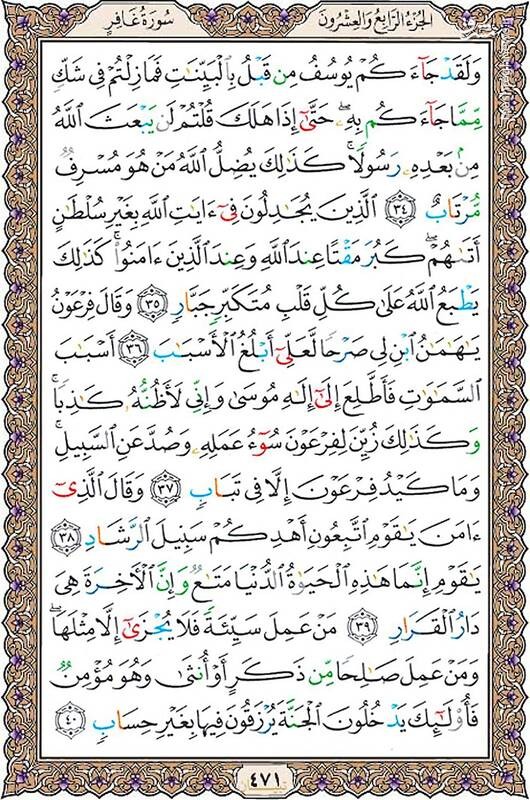 سُورَةُ غَافِرٍ
الجُزْءُ الرَّابِعُ وَالعِشْرُونَ
وَلَقَدْ جَآءَكُمْ يُوسُفُ مِن قَبْلُ بِٱلْبَيِّنَٰتِ فَمَا زِلْتُمْ فِى شَكٍّ
مِّمَّا جَآءَكُم بِهِۦ ۖ حَتَّىٰٓ إِذَا هَلَكَ قُلْتُمْ لَن يَبْعَثَ ٱللَّهُ
مِنۢ بَعْدِهِۦ رَسُولًا ۚ كَذَٰلِكَ يُضِلُّ ٱللَّهُ مَنْ هُوَ مُسْرِفٌ
مُّرْتَابٌ ﴿٣٤﴾ ٱلَّذِينَ يُجَٰدِلُونَ فِىٓ ءَايَٰتِ ٱللَّهِ بِغَيْرِ سُلْطَٰنٍ
أَتَىٰهُمْ ۖ كَبُرَ مَقْتًا عِندَ ٱللَّهِ وَعِندَ ٱلَّذِينَ ءَامَنُوا۟ ۚ كَذَٰلِكَ
يَطْبَعُ ٱللَّهُ عَلَىٰ كُلِّ قَلْبِ مُتَكَبِّرٍ جَبَّارٍ ﴿٣٥﴾ وَقَالَ فِرْعَوْنُ
يَٰهَٰمَٰنُ ٱبْنِ لِى صَرْحًا لَّعَلِّىٓ أَبْلُغُ ٱلْأَسْبَٰبَ ﴿٣٦﴾ أَسْبَٰبَ
ٱلسَّمَٰوَٰتِ فَأَطَّلِعَ إِلَىٰٓ إِلَٰهِ مُوسَىٰ وَإِنِّى لَأَظُنُّهُۥ كَٰذِبًا ۚ
وَكَذَٰلِكَ زُيِّنَ لِفِرْعَوْنَ سُوٓءُ عَمَلِهِۦ وَصُدَّ عَنِ ٱلسَّبِيلِ ۚ
وَمَا كَيْدُ فِرْعَوْنَ إِلَّا فِى تَبَابٍ ﴿٣٧﴾ وَقَالَ ٱلَّذِىٓ
ءَامَنَ يَٰقَوْمِ ٱتَّبِعُونِ أَهْدِكُمْ سَبِيلَ ٱلرَّشَادِ ﴿٣٨﴾
يَٰقَوْمِ إِنَّمَا هَٰذِهِ ٱلْحَيَوٰةُ ٱلدُّنْيَا مَتَٰعٌ وَإِنَّ ٱلْءَاخِرَةَ هِىَ
دَارُ ٱلْقَرَارِ ﴿٣٩﴾ مَنْ عَمِلَ سَيِّئَةً فَلَا يُجْزَىٰٓ إِلَّا مِثْلَهَا ۖ
وَمَنْ عَمِلَ صَٰلِحًا مِّن ذَكَرٍ أَوْ أُنثَىٰ وَهُوَ مُؤْمِنٌ
فَأُو۟لَٰٓئِكَ يَدْخُلُونَ ٱلْجَنَّةَ يُرْزَقُونَ فِيهَا بِغَيْرِ حِسَابٍ ﴿٤٠﴾
٤٧١